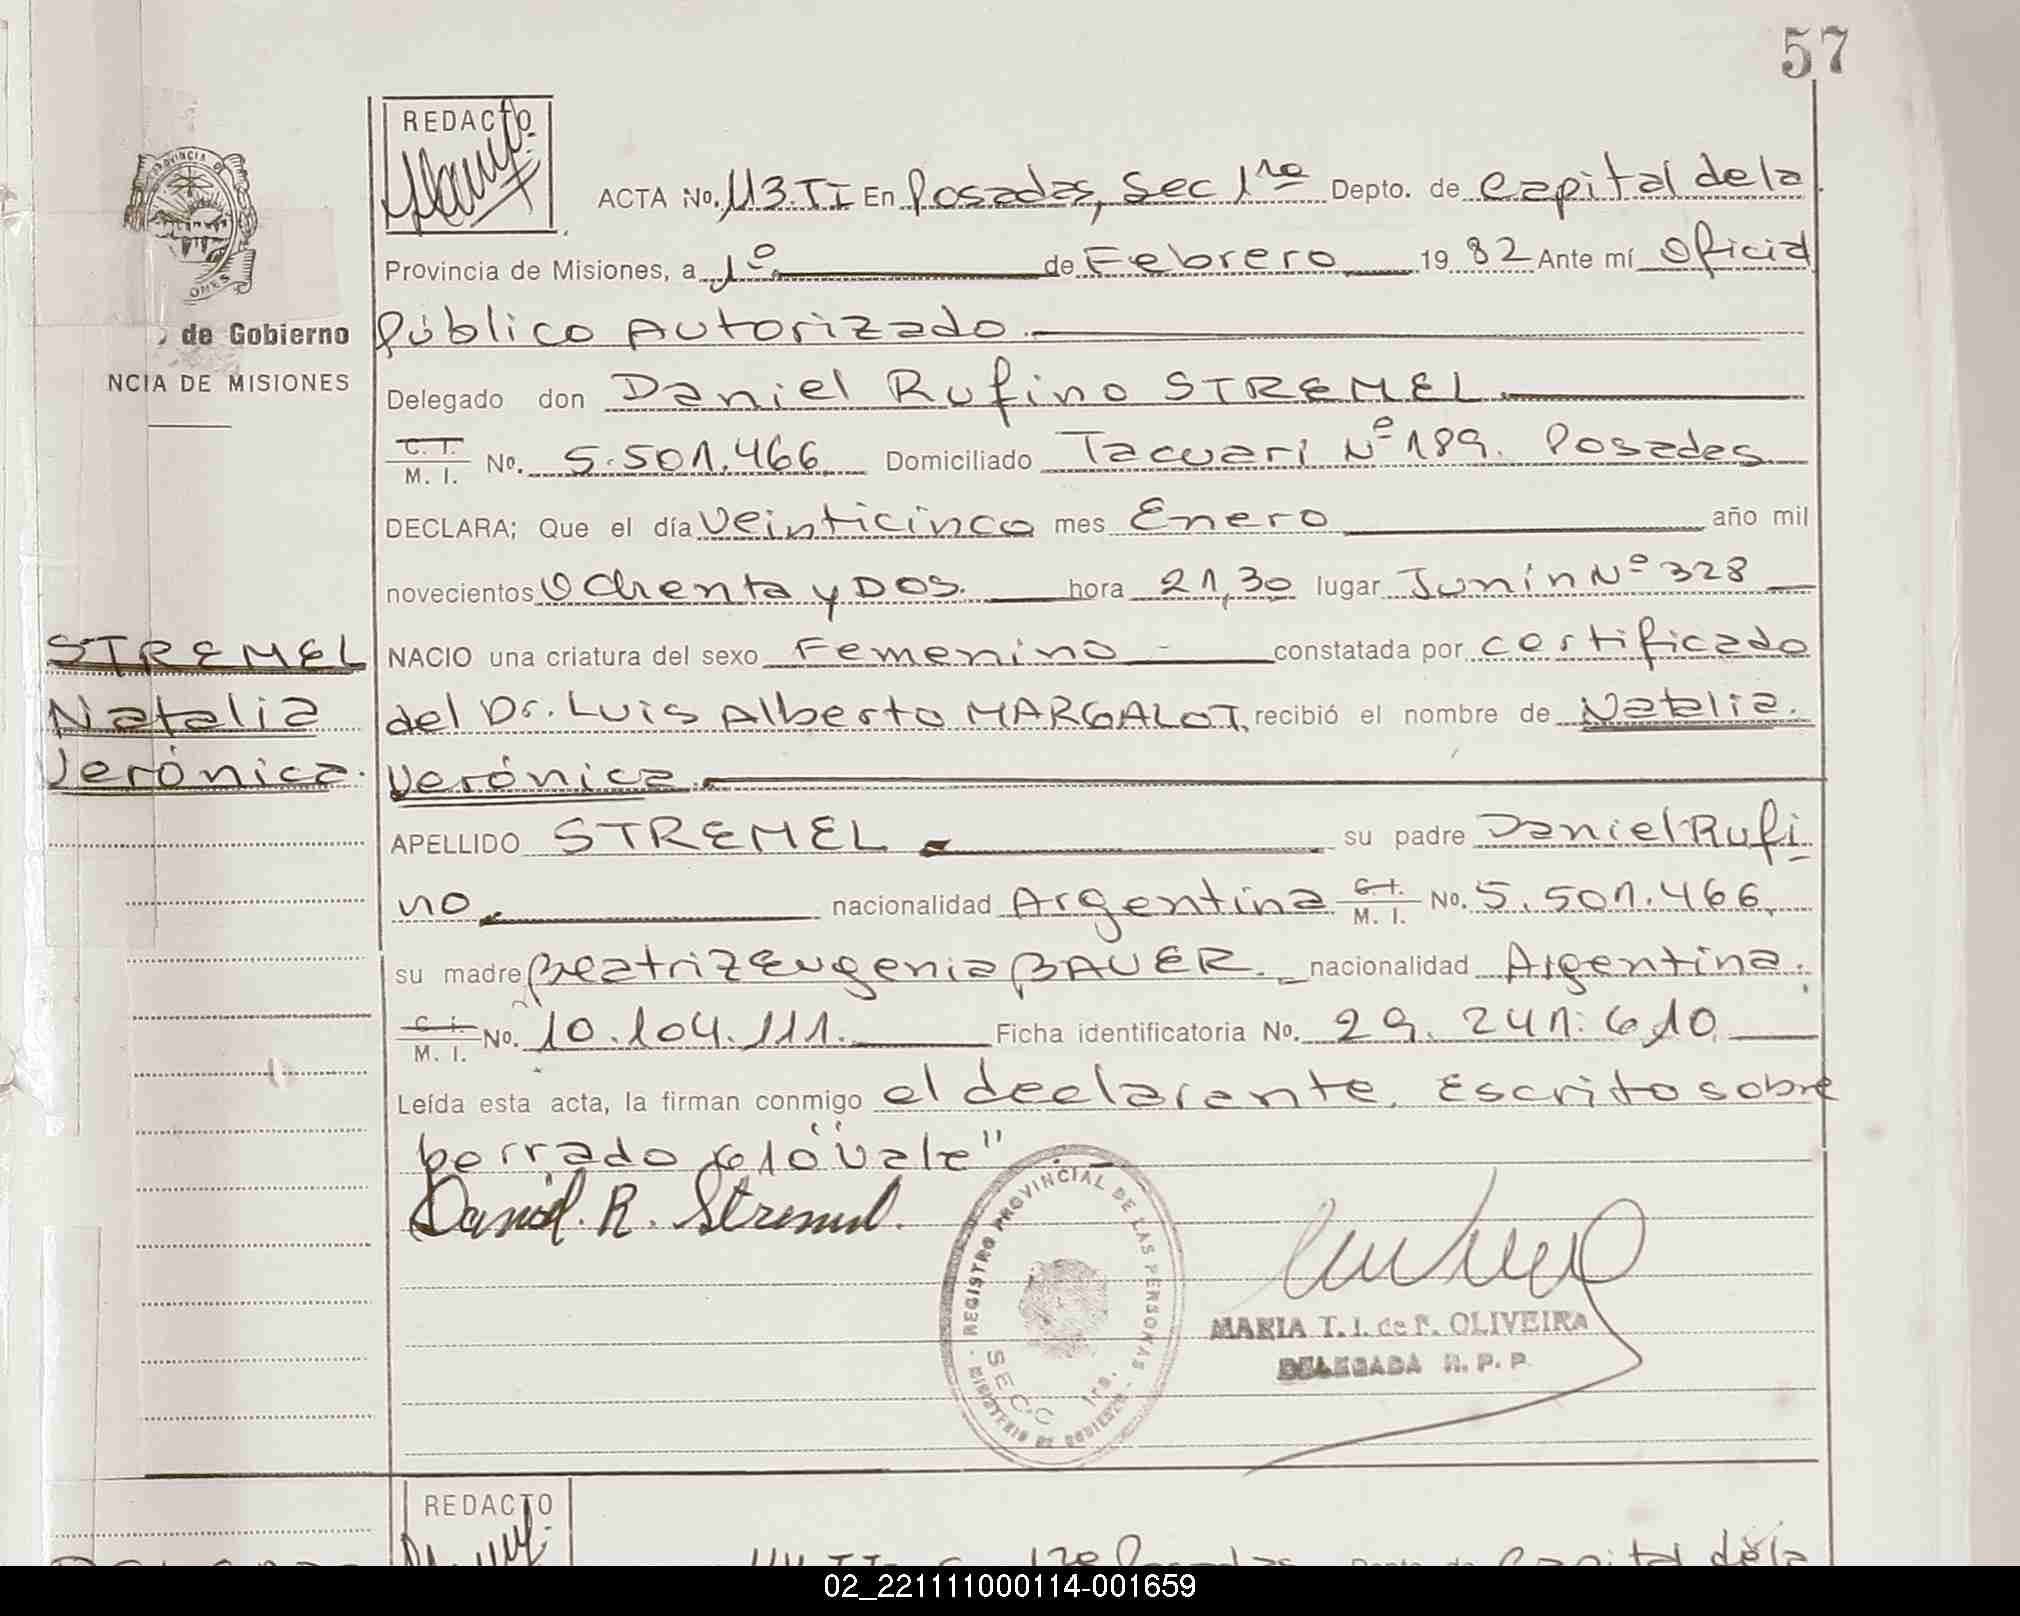 57
REDACTO
ACTA No. 113.TI En Posadas, Sec 1ra Depto. de Capital de la
Provincia de Misiones, a 1º de Febrero 1982 Ante mí Oficial
Público Autorizado.
de Gobierno
NCIA DE MISIONES
Delegado don Daniel Rufino STREMEL
C. I. M. I. No. 5.501.466 Domiciliado Tacuarí Nº 189. Posadas
DECLARA; Que el día Veinticinco mes Enero año mil
novecientos Ochenta y DOS. hora 21,30 lugar Junín Nº 328
STREMEL
Natalia
Verónica.
NACIO una criatura del sexo Femenino - constatada por certificado
del Dr. Luis Alberto MARGALOT, recibió el nombre de Natalia.
Verónica.
APELLIDO STREMEL su padre Daniel Rufi
no. nacionalidad Argentina C. I. M. I. No. 5.501.466,
su madre Beatriz Eugenia BAUER. nacionalidad Argentina.
C. I. M. I. No. 10.104.111. Ficha identificatoria No. 29.241.610
Leída esta acta, la firman conmigo el declarante. Escrito sobre
borrado 610 "vale"
Daniel. R. Stremel.
REGISTRO PROVINCIAL DE LAS PERSONAS
MINISTERIO DE GOBIERNO
SECC 1ra.
MARIA T. I. de F. OLIVEIRA
DELEGADA R. P. P.
REDACTO
02_221111000114-001659